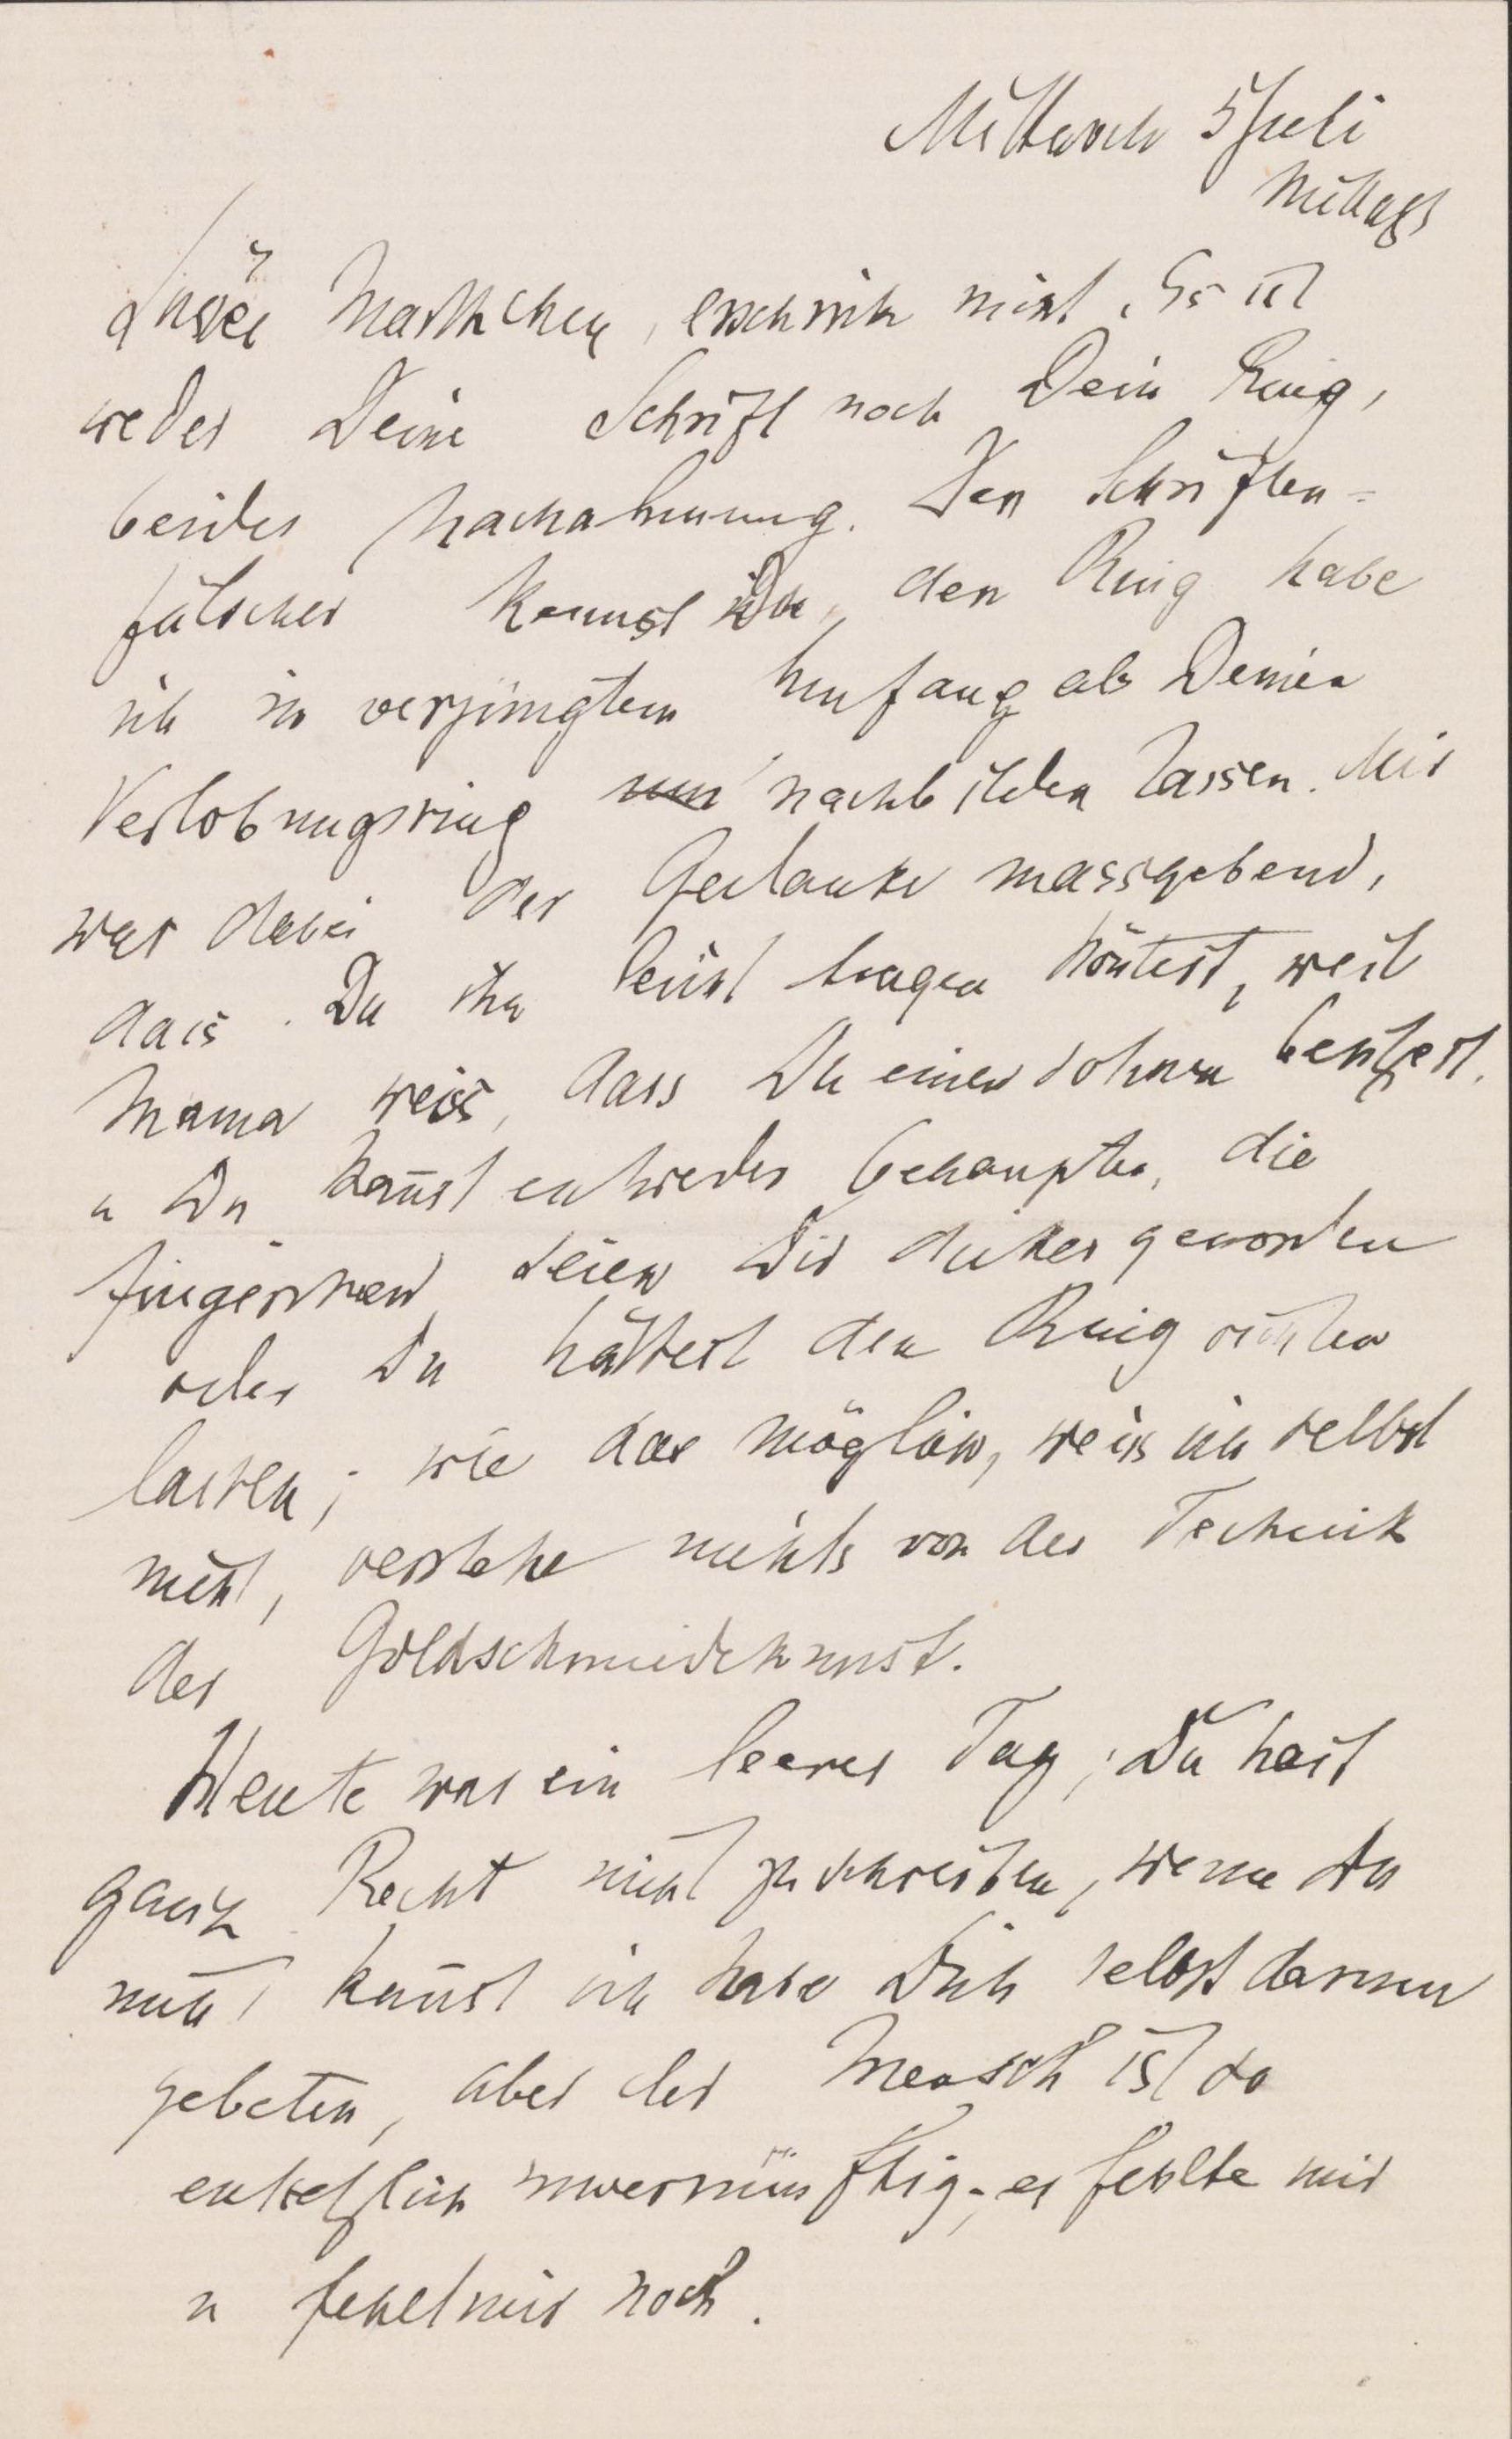 Mittwoch 5 Juli
Mittags
Marthchen, erschrick nicht. Es ist
weder Deine Schrift noch Dein Ring,
beides Nachahmung. Den Schriften=
fälscher kennst Du, den Ring habe
ich in verjüngtem Umfang als Deinen
Verlobungsring nachbilden lassen. Mir
war dabei der Gedanke massgebend,
dass Du ihn leicht tragen köntest, weil
Mama weiss, dass Du einen solchen besitzest.
u Du kan̄st entweder behaupten, die
Finger seien Dir dicker geworden
oder Du hättest den Ring richten
lassen; wie das möglich, weiss ich selbst
nicht, verstehe nichts von der Technik
der Goldschmiedekunst.
Heute war ein leerer Tag; Du hast
ganz Recht nicht zu schreiben, wenn Du
nicht kan̄st ich habe Dich selbst darum
gebeten, aber der Mensch ist so
entsetzlich unvernünftig; es fehlte mir
u fehlt mir noch.